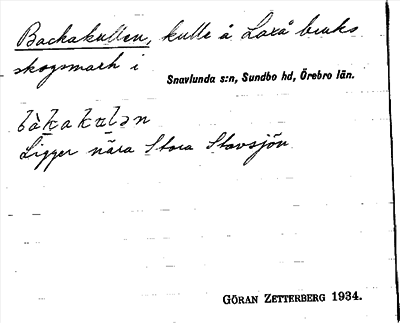 Backakullen, kulle å Laxå bruks
skogsmark i
Snavlunda s:n, Sundbo hd, Örebro län.
bàkakulən
Ligger nära Stora Stavsjön
GÖRAN ZETTERBERG 1934.